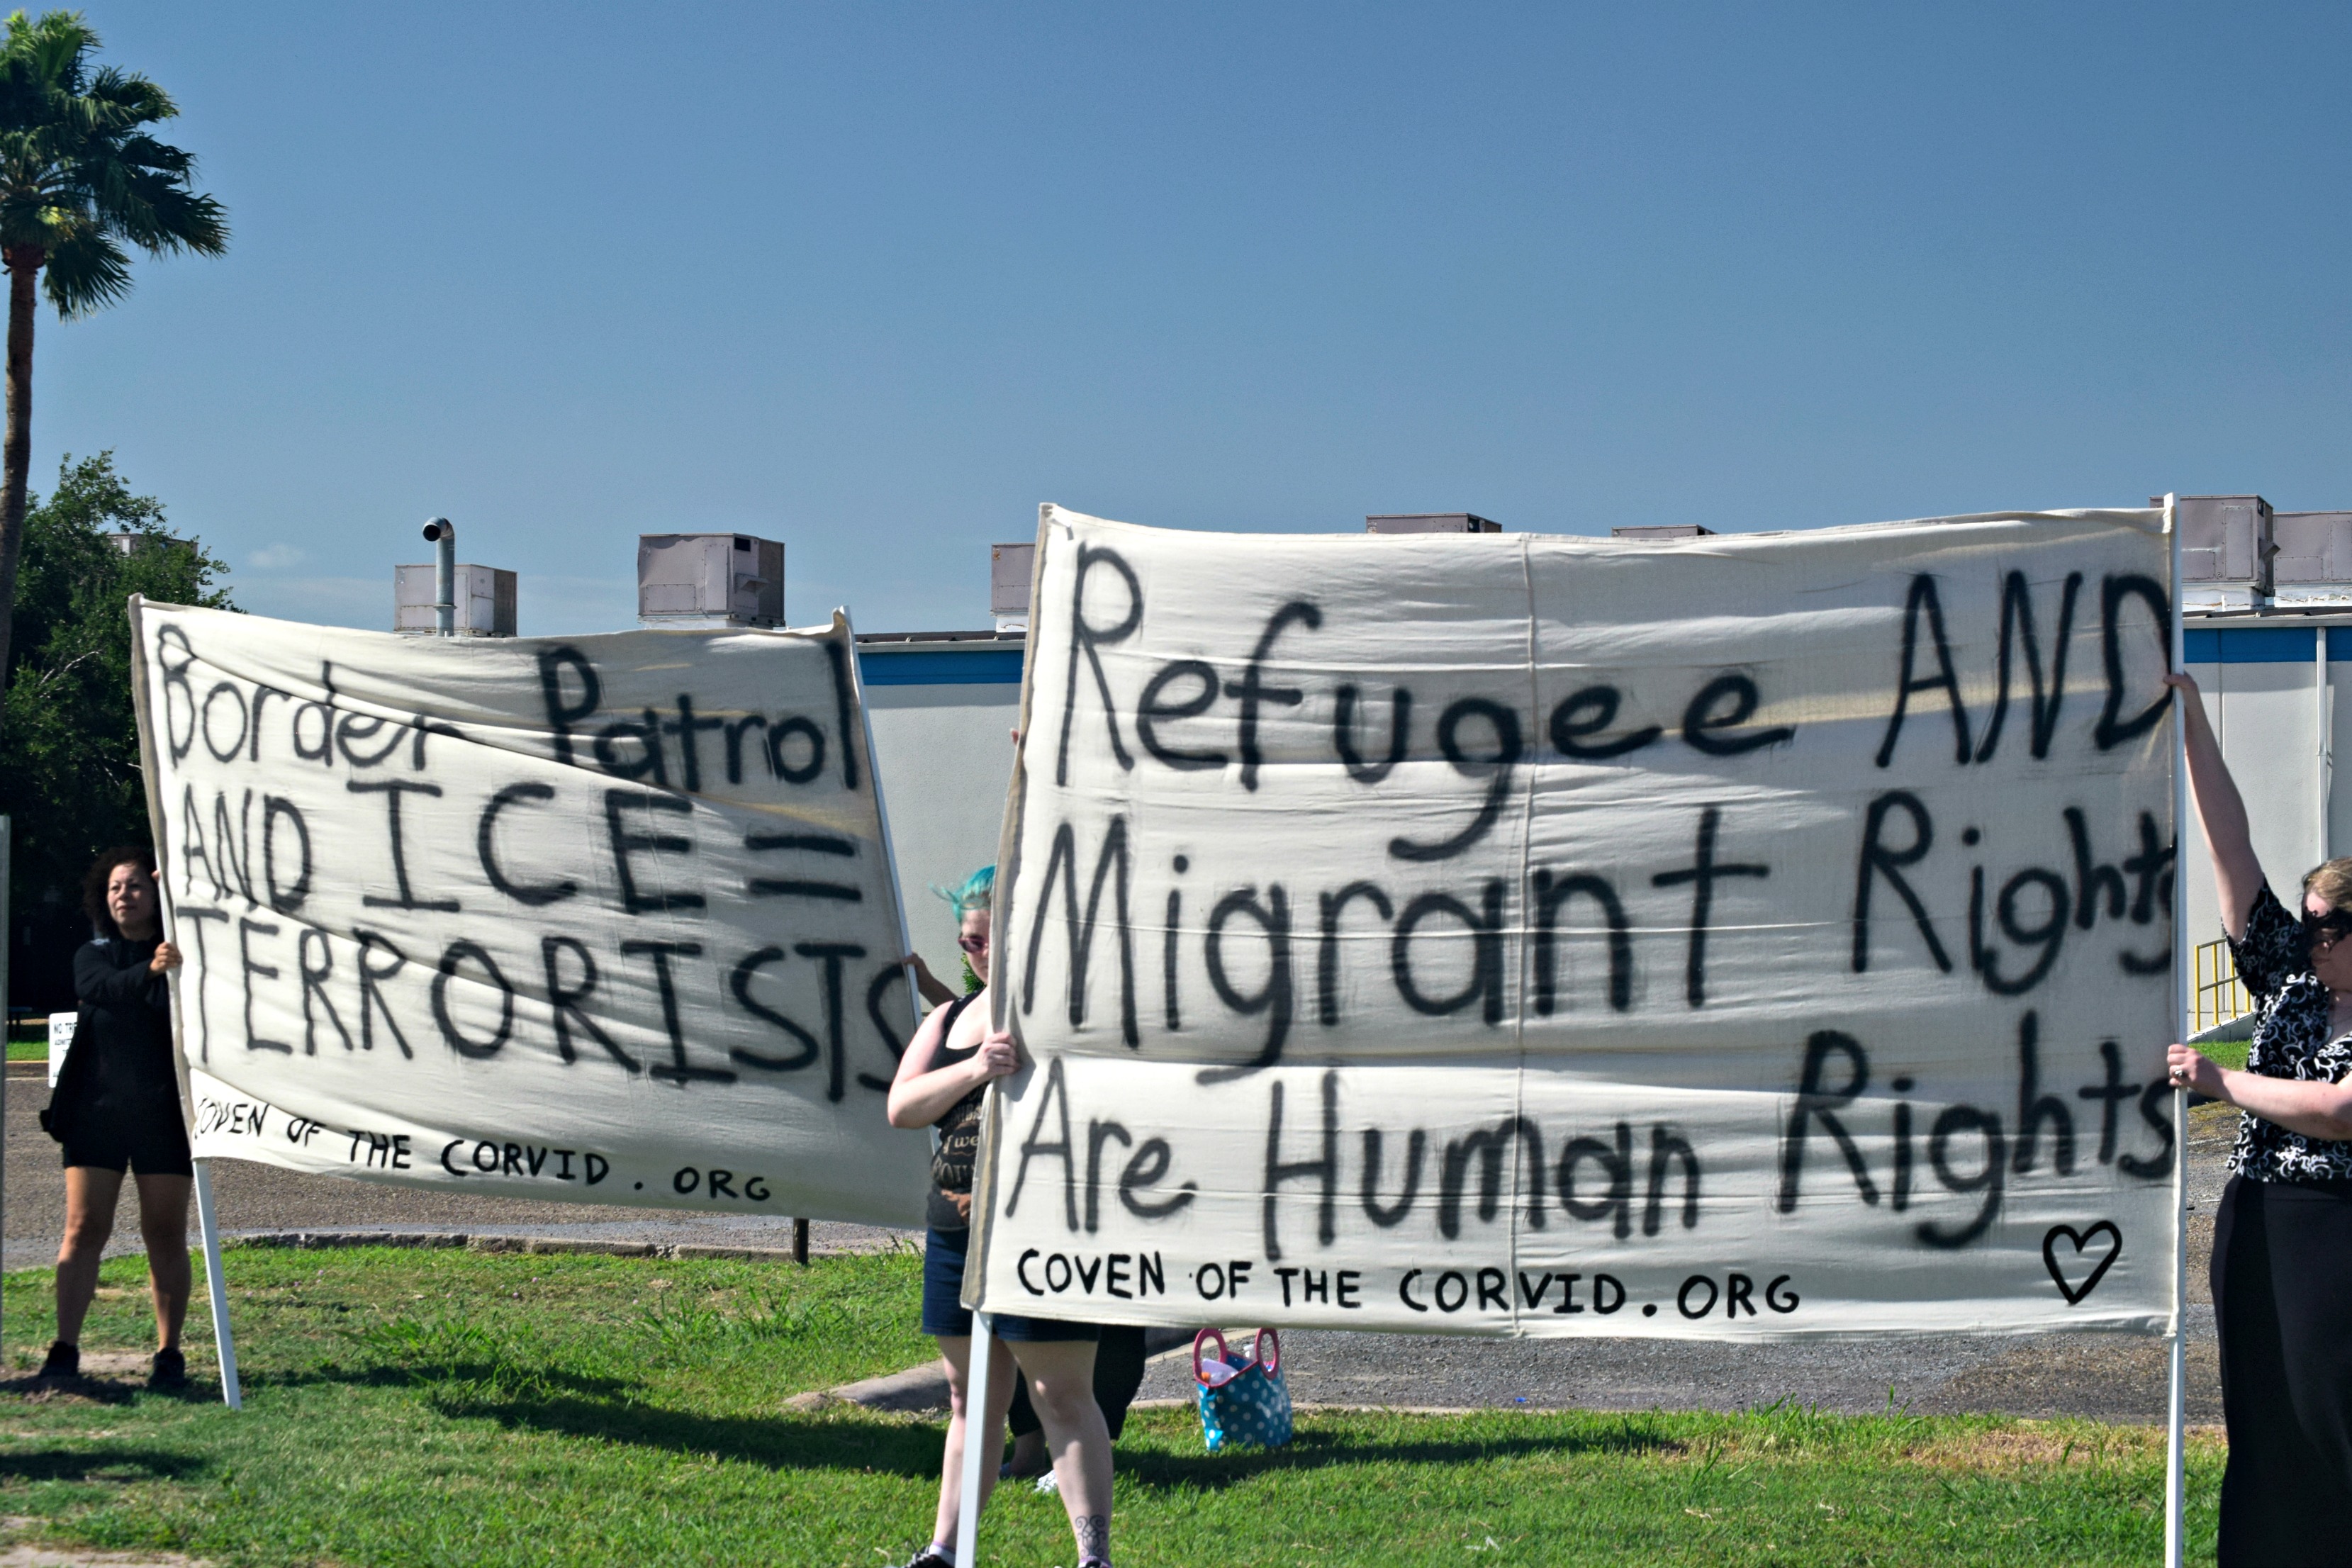 Border Patrol
AND ICE =
TERRORISTS
COVEN OF THE CORVID . ORG
Refugee AND
Migrant Rights
Are Human Rights
COVEN OF THE CORVID.ORG
NO